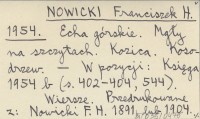 NOWICKI Franciszek H.
1954. Echa górskie. Mgły
na szczytach. Kozica. Koso-
drzew. — W pozycji: Księga
1954 b (s. 402-404, 544).
Wiersze. Przedrukowane
z: Nowicki F. H. 1891 lub 1904.